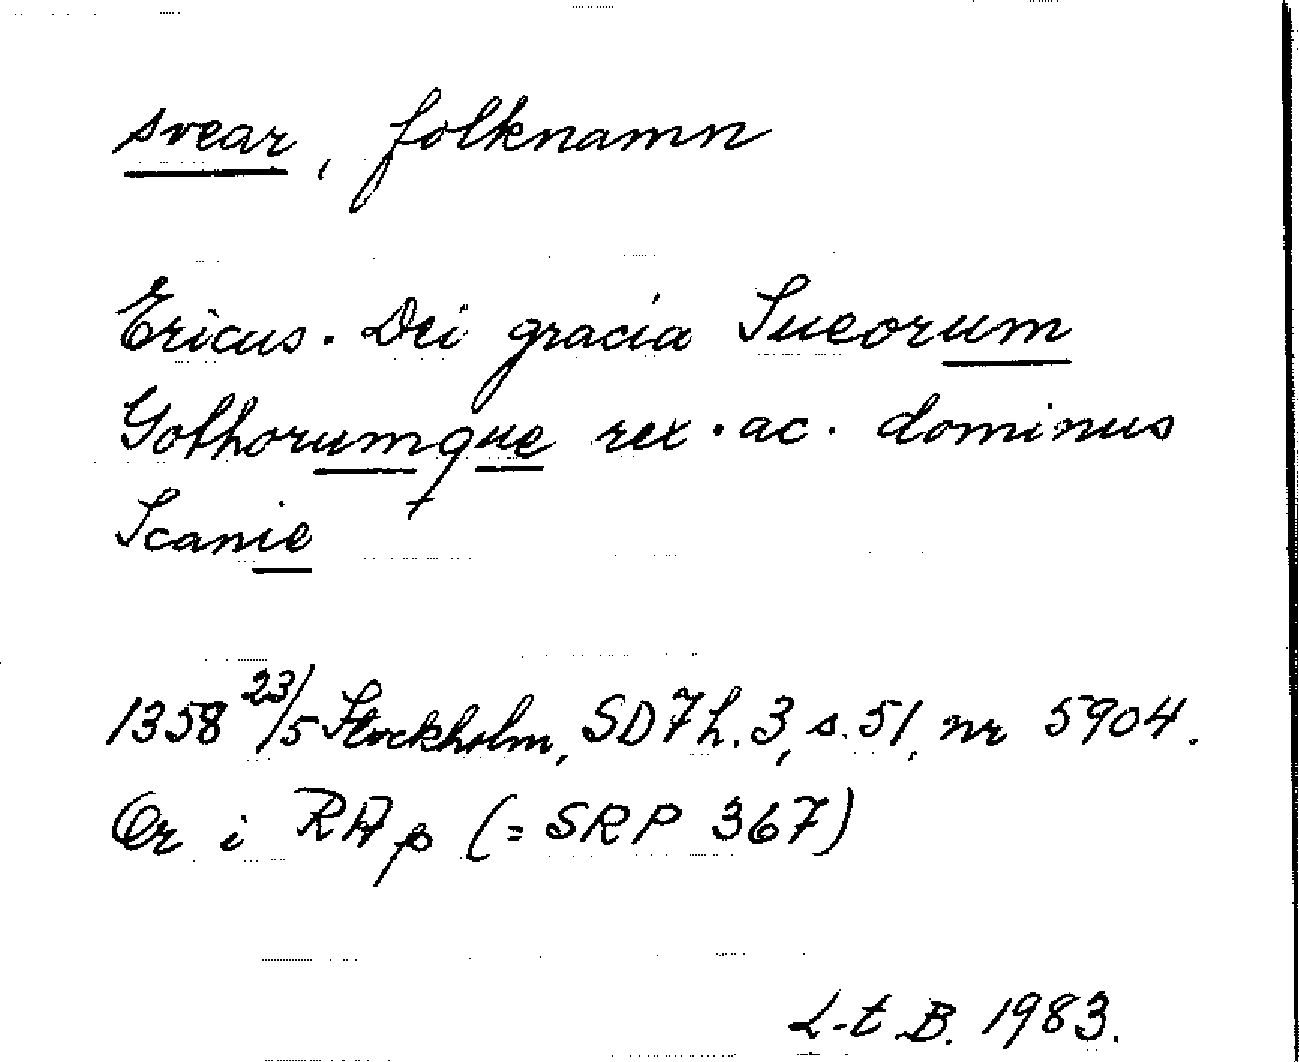 svear, folknamn
Ericus. Dei gracia Sueorum
Gothorumque rex. ac. dominus
Scanie
1358 23/5 Stockholm, SD 7 h. 3, s. 51, nr 5904.
Or i RAp (= SRP 367)
L-t B. 1983.